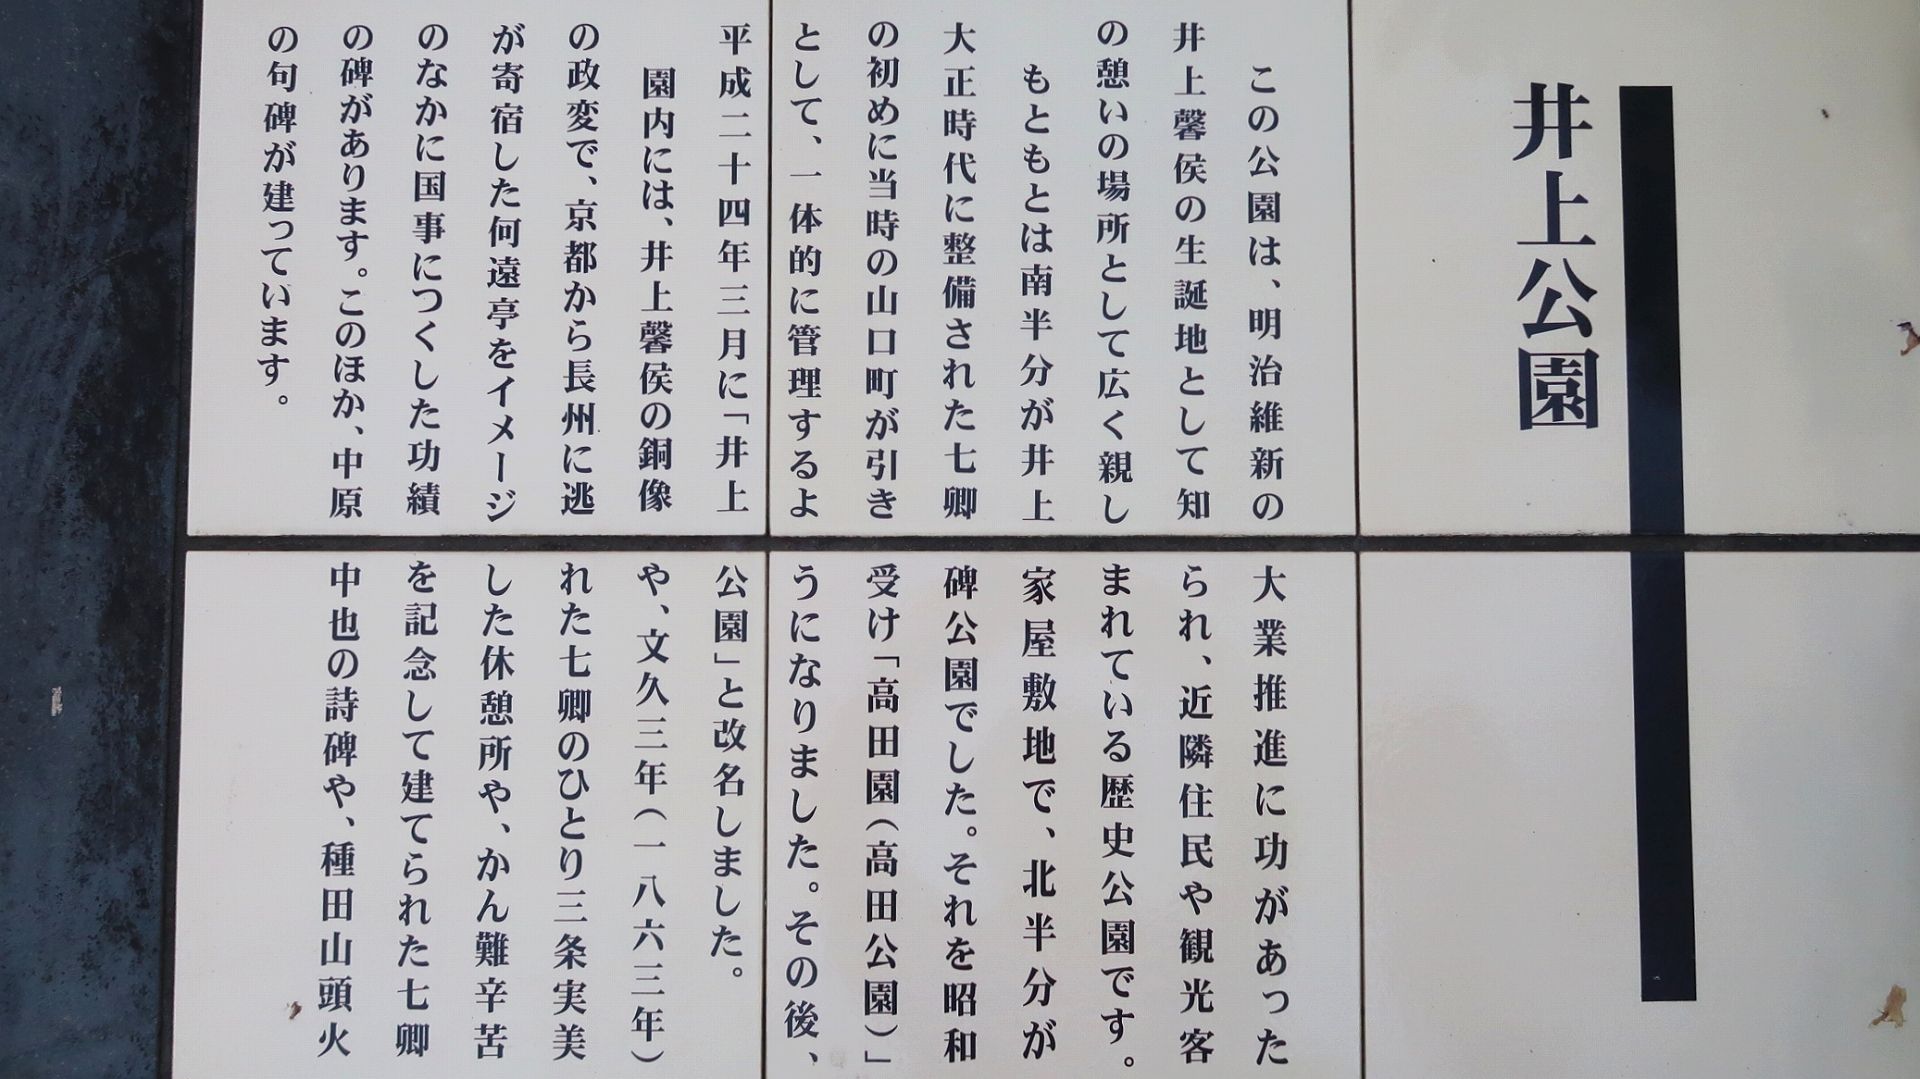 井上公園
この公園は、明治維新の大業推進に功があった
井上馨侯の生誕地として知られ、近隣住民や観光客
の憩いの場所として広く親しまれている歴史公園です。
もともとは南半分が井上家屋敷地で、北半分が
大正時代に整備された七卿碑公園でした。それを昭和
の初めに当時の山口町が引き受け「高田園(高田公園)」
として、一体的に管理するようになりました。その後、
平成二十四年三月に「井上公園」と改名しました。
園内には、井上馨侯の銅像や、文久三年(一八六三年)
の政変で、京都から長州に逃れた七卿のひとり三条実美
が寄宿した何遠亭をイメージした休憩所や、かん難辛苦
のなかに国事につくした功績を記念して建てられた七卿
の碑があります。このほか、中原中也の詩碑や、種田山頭火
の句碑が建っています。